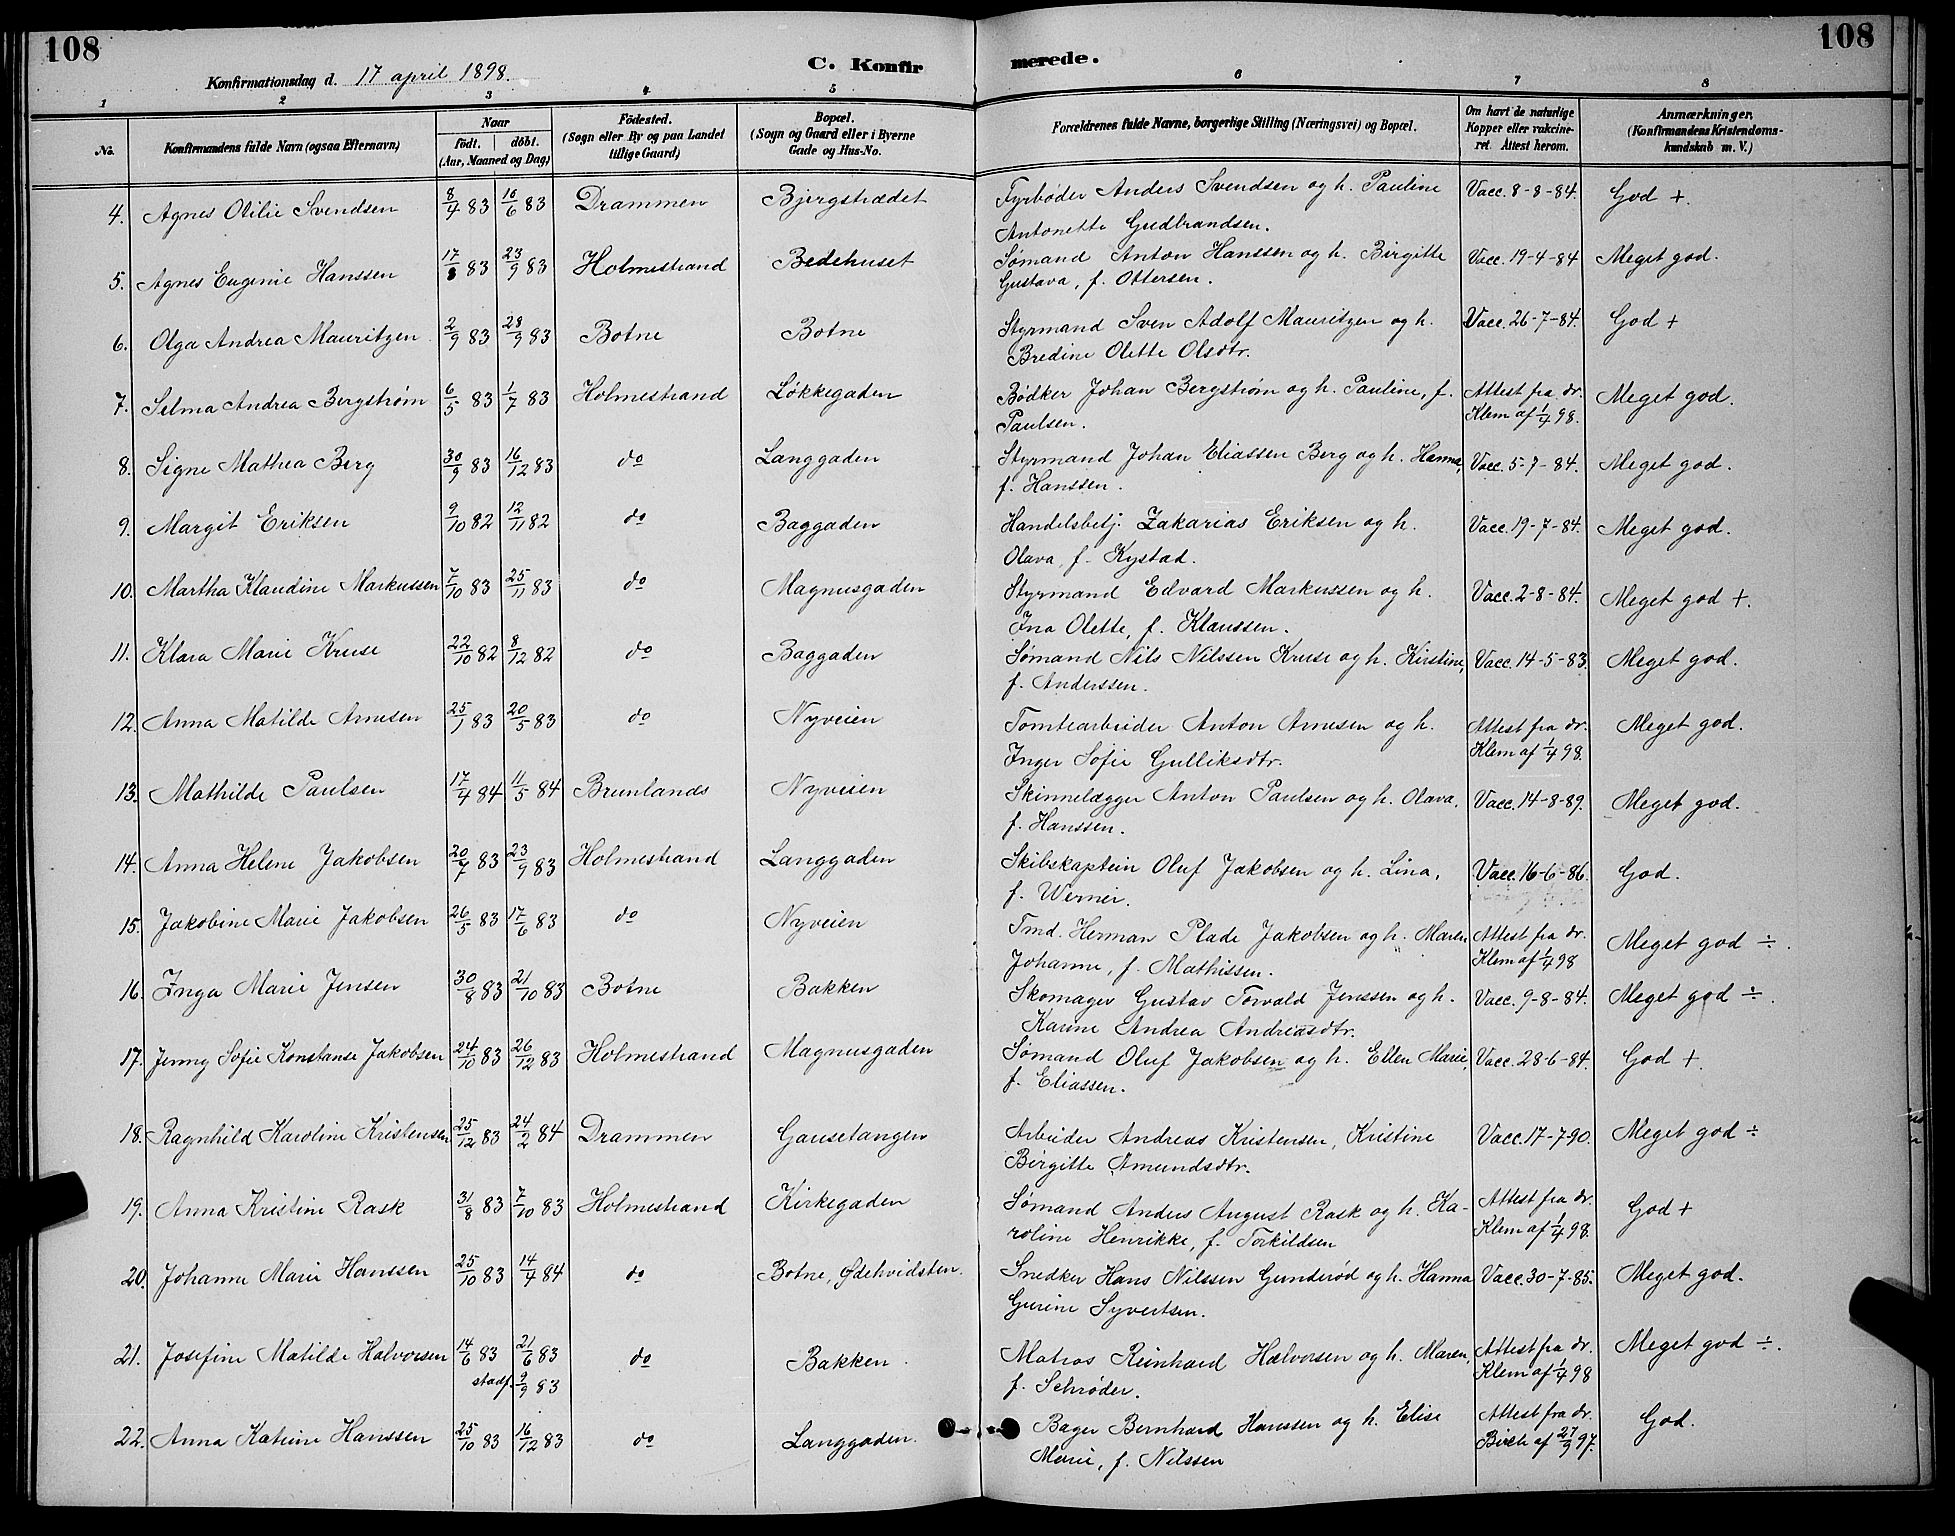 108
108
C. Konfir
merede.
Konfirmationsdag d. 17 april 1898.
1 2 3 4 5 6 7 8
No.
Konfirmandens fulde Navn (ogsaa Efternavn)
Naar
født. døbt.
(Aar, Maaned og Dag)
Fødested.
(Sogn eller By og paa Landet
tillige Gaard)
Bopæl.
(Sogn og Gaard eller i Byerne
Gade og Hus-No.
Forældrenes fulde Navne, borgerlige Stilling (Næringsvei) og Bopæl.
Om havt de naturlige
Kopper eller vakcine-
ret. Attest herom.
Anmærkninger.
(Konfirmandens Kristendoms-
kundskab m. V.)
4. Agnes Otilie Svendsen 8/4 83 16/6 83 Drammen Bjergstrædet Fyrbøder Anders Svendsen og h. Pauline Vacc. 8-8-84. God +.
Antonette Gudbrandsen.
5. Agnes Eugenie Hanssen 17/8 83 23/9 83 Holmestrand Bedehuset Sømand Anton Hanssen og h. Birgitte Vacc. 19-4-84 Meget god.
Gustava, f. Ottersen.
6. Olga Andrea Mauritzen 2/9 83 28/9 83 Botne Botne Styrmand Sven Adolf Mauritzen og h. Vacc. 26-7-84. God +
Bredine Olette Olsdtr.
7. Selma Andrea Bergstrøm 6/5 83 1/7 83 Holmestrand Løkkegaden Bødker Johan Bergstrøm og h. Pauline, f. Attest fra dr. Meget god.
Paulsen. Klem af 1/4 98.
8. Signe Mathea Berg 30/9 83 16/12 83 do Langgaden Styrmand Johan Eliassen Berg og h. Hanna, Vacc. 5-7-84. Meget god.
f. Hanssen.
9. Margit Eriksen 9/10 82 12/11 82 do Baggaden Handelsbetj. Zakarias Eriksen og h. Vacc. 19-7-84. Meget god.
Olava, f. Kystad.
10. Martha Klaudine Markussen 7/10 83 25/11 83 do Magnusgaden Styrmand Edvard Markussen og h. Vacc. 2-8-84. Meget god +.
Ina Olette, f. Klaussen.
11. Klara Marie Kruse 22/10 82 8/12 82 do Baggaden Sømand Nils Nilssen Kruse og h. Kirstine, Vacc. 14-5-83. Meget god.
f. Anderssen.
12. Anna Matilde Arnesen 25/1 83 20/5 83 do Nyveien Tomtearbeider Anton Arnesen og h. Attest fra dr. Meget god.
Inger Sofie Gulliksdtr. Klem af 1/4 98.
13. Mathilde Paulsen 17/4 84 11/5 84 Brunlands Nyveien Skinnelægger Anton Paulsen og h. Olava, Vacc. 14-8-89. Meget god.
f. Hanssen.
14. Anna Helene Jakobsen 20/7 83 23/9 83 Holmestrand Langgaden Skibskaptein Oluf Jakobsen og h. Lina, Vacc. 16-6-86. God.
f. Werner.
15. Jakobine Marie Jakobsen 26/5 83 17/6 83 do Nyveien Tmd. Herman Plade Jakobsen og h. Maren Attest fra dr. Meget god ÷.
Johanne, f. Mathissen. Klem af 1/4 98
16. Inga Marie Jensen 30/8 83 21/10 83 Botne Bakken Skomager Gustav Torvald Jenssen og h. Vacc. 9-8-84. Meget god ÷.
Karine Andrea Andreasdtr.
17. Jenny Sofie Konstanse Jakobsen 24/10 83 26/12 83 Holmestrand Magnusgaden Sømand Oluf Jakobsen og h. Ellen Marie, Vacc. 28-6-84. God +.
f. Eliassen.
18. Ragnhild Karoline Kristensen 25/12 83 24/2 84 Drammen Gausetangen Arbeider Andreas Kristensen, Kristine Vacc. 17-7-90. Meget god ÷
Birgitte Amundsdtr.
19. Anna Kristine Rask 31/8 83 7/10 83 Holmestrand Kirkegaden Sømand Anders August Rask og h. Ka- Attest fra dr. God +
roline Henrikke, f. Torkildsen Klem af 1/4 98.
20. Johanne Marie Hanssen 25/10 83 14/4 84 do Botne, Ødehvidsten. Snedker Hans Nilssen Gunderød og h. Hanna Vacc. 30-7-85. Meget god.
Gurine Syvertsen.
21. Josefine Matilde Halvorsen 14/6 83 21/6 83 do Bakken. Matros Reinhard Halvorsen og h. Maren, Attest fra dr. Meget god ÷.
stadf. 9/9 83 f. Schrøder. Klem af 1/4 98
22. Anna Katrine Hanssen 25/10 83 16/12 83 do Langgaden. Bager Bernhard Hanssen og h. Elise Attest fra dr. God.
Marie, f. Nilssen Birch af 27/9 97.